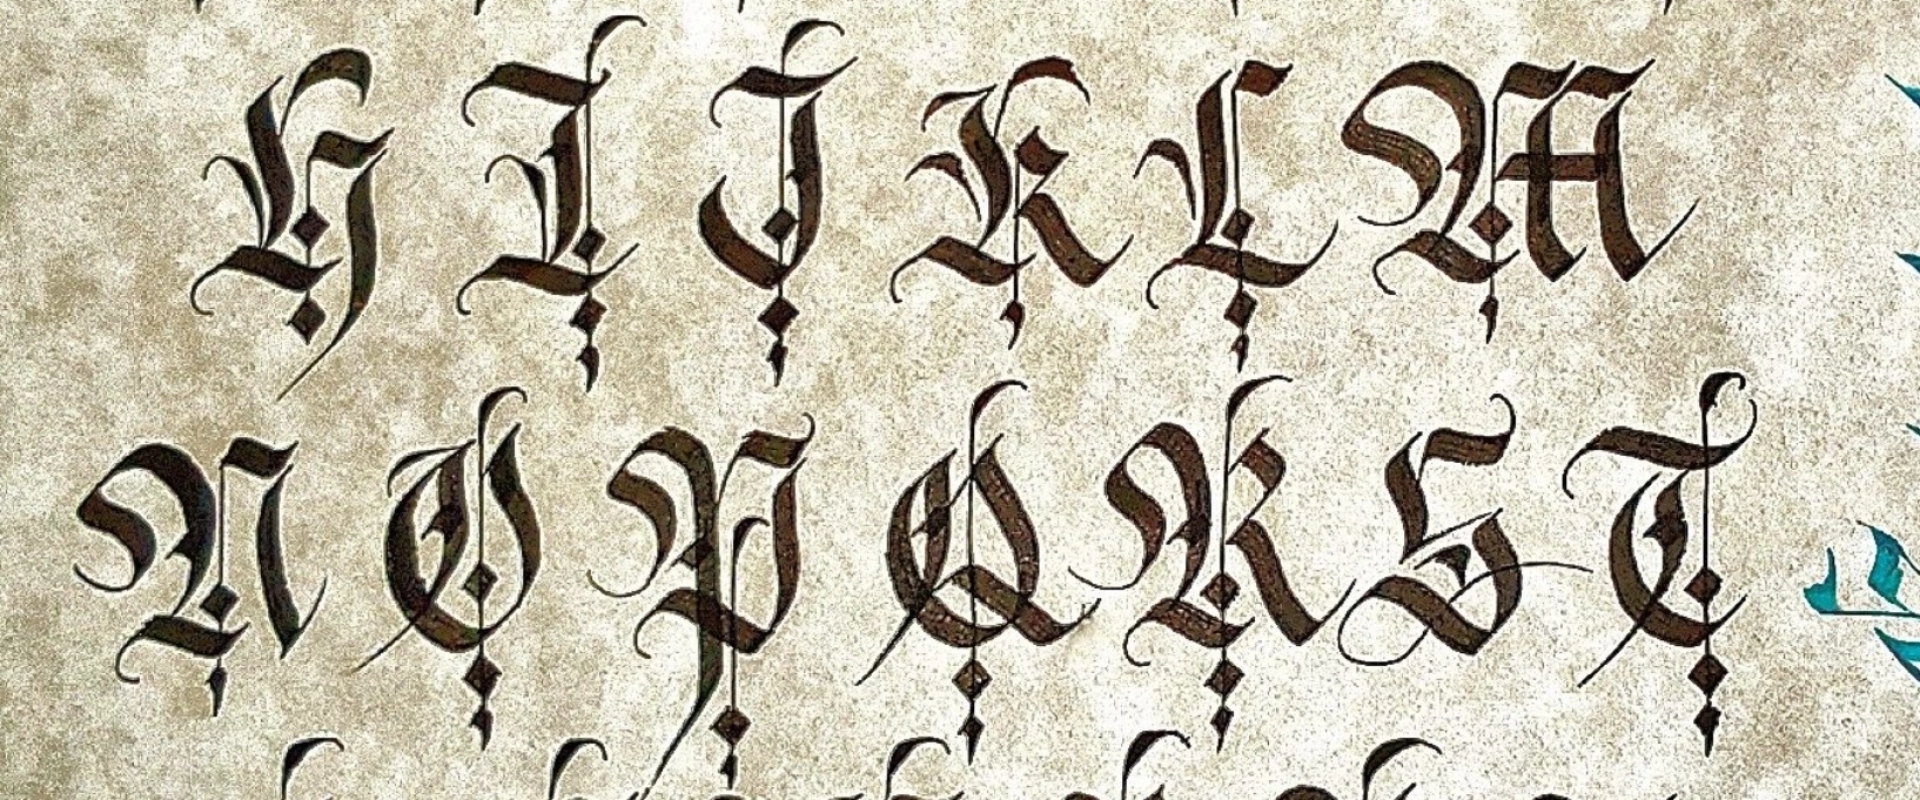 H I J K L M
N O P Q R S T